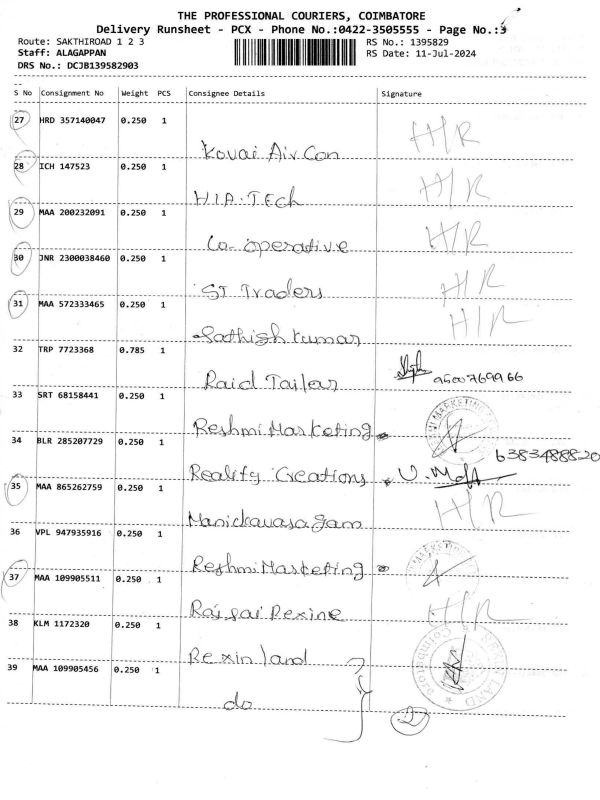 THE PROFESSIONAL COURIERS, COIMBATORE
Delivery Runsheet - PCX - Phone No.:0422-3505555 - Page No.:3
Route: SAKTHIROAD 1 2 3
RS No.: 1395829
Staff: ALAGAPPAN
RS Date: 11-Jul-2024
DRS No.: DCJB139582903
S No Consignment No Weight PCS Consignee Details Signature
27 HRD 357140047 0.250 1 Kovai Air Con H/R
28 ICH 147523 0.250 1 HIA.TECh H/R
29 MAA 200232091 0.250 1 Co-operative H/R
30 JNR 2300038460 0.250 1 ST Traders H/R
31 MAA 572333465 0.250 1 Sathish kumar H/R
32 TRP 7723368 0.785 1 Raid Tailear 9500769966
33 SRT 68158441 0.250 1 Reshmi Marketing
34 BLR 285207729 0.250 1 Reality Creations 6383488820
35 MAA 865262759 0.250 1 Manickavasagam H/R
36 VPL 947935916 0.250 1 Reshmi Marketing
37 MAA 109905511 0.250 1 Raisai Rexine H/R
38 KLM 1172320 0.250 1 Rexin land
39 MAA 109905456 0.250 1 do 2